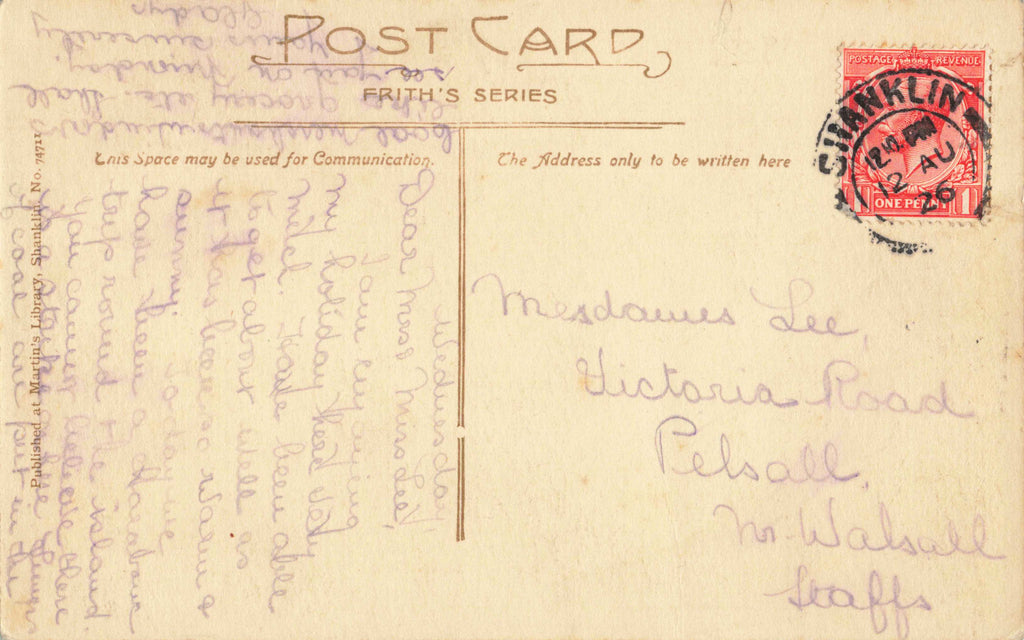 POST CARD
FRITH'S SERIES
This Space may be used for Communication.
The Address only to be written here
POSTAGE REVENUE
ONE PENNY
1 1
SHANKLIN
12 AU
26
Published at Martin's Library, Shanklin. No. 74711
Wednesday
Dear Mrs & Miss Lee,
I am enjoying
my holiday here very
much. Have been able
to get about well as
it has been so warm &
sunny. Today we
have been a
trip round the island.
You cannot believe there
is a strike on the
if coal are put in the
coal merchants windows
like grocery etc. Shall
see you on Monday.
Yours sincerely
Gladys
Mesdames Lee,
Victoria Road
Pelsall,
Nr. Walsall
Staffs